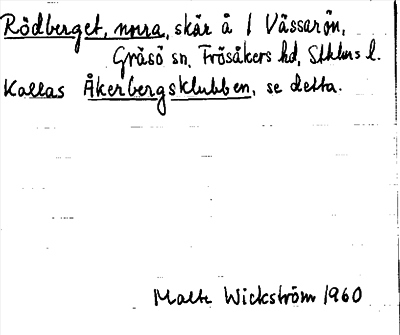 Rödberget, norra, skär å 1 Vässarön,
Gräsö sn, Frösåkers hd, Sthlms l.
Kallas Åkerbergsklubben, se detta.
Malte Wickström 1960